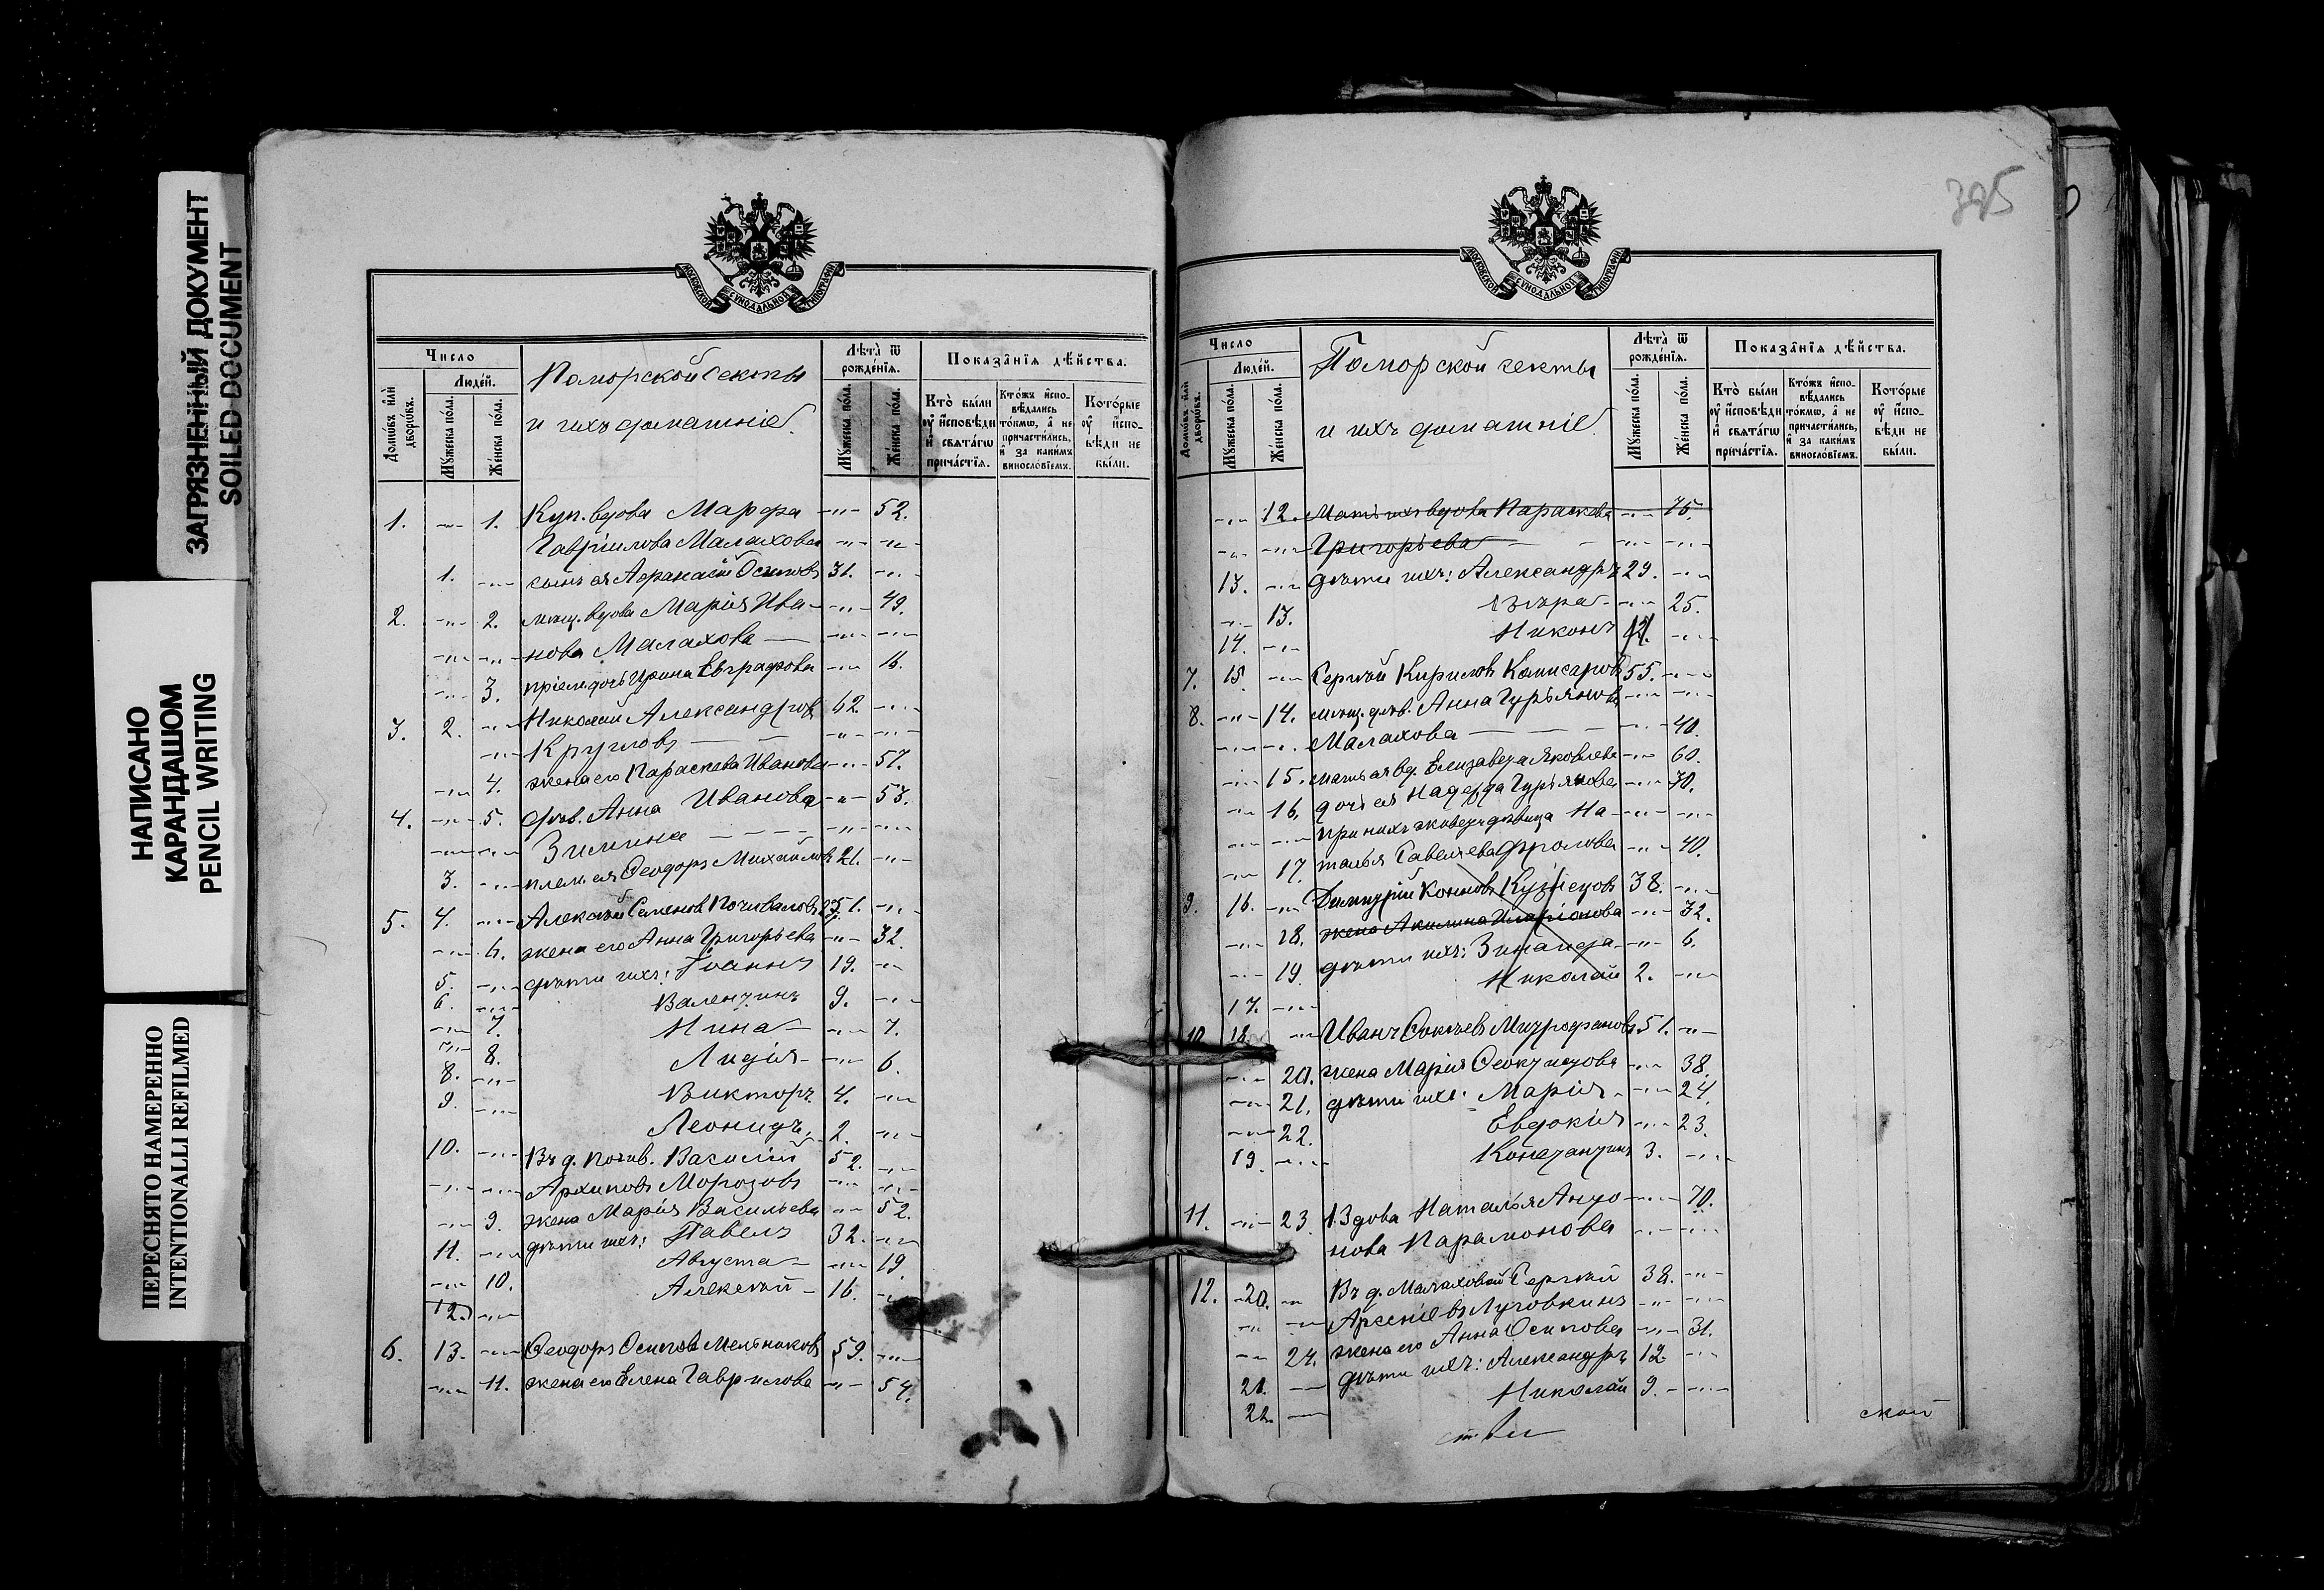 ЗАГРЯЗНЕННЫЙ ДОКУМЕНТ
SOILED DOCUMENT
НАПИСАНО
КАРАНДАШОМ
PENCIL WRITING
ПЕРЕСНЯТО НАМЕРЕННО
INTENTIONALLI REFILMED
МОСКОВСКОЙ СѴНОДАЛЬНОЙ ТИПОГРАФІИ
Число
Людей.
Домовъ или дворовъ.
Мужеска пола.
Женска пола.
Поморской секты
и ихъ домашніе.
Лѣта ѿ рожденія.
Мужеска пола.
Женска пола.
Показанія дѣйства.
Кто были у исповѣди и святагѡ причастія.
Ктожъ исповѣдались токмѡ, а не причастились, и за какимъ винословіемъ.
Которые у исповѣди не были.
1. -„- 1. Куп. вдова Марфа -„- 52.
Гавріилова Малахова -„- -„-
1. -„- сынъ ея Афанасій Осиповъ 31. -„-
2. -„- 2. мѣщ. вдова Марія Ива- -„- 49.
-„- -„- нова Малахова -„- -„-
-„- 3. пріем. дочь Ирина Евграфова -„- 16.
3. 2. -„- Николай Александровъ 62. -„-
-„- Кругловъ -„- -„-
-„- 4. жена его Параскева Иванова -„- 57.
4. -„- 5. дѣв. Анна Иванова -„- 53.
-„- -„- Зимина -„- -„-
3. -„- плем. ея Ѳеодоръ Михайловъ 21. -„-
5. 4. -„- Алексѣй Семеновъ Почиваловъ 51. -„-
-„- 6. жена его Анна Григорьева -„- 32.
5. -„- дѣти ихъ: Іоаннъ 19. -„-
6. -„- Валентинъ 9. -„-
-„- 7. Нина -„- 7.
-„- 8. Лидія -„- 6.
8. -„- Викторъ 4. -„-
9. -„- Леонидъ 2. -„-
10. -„- Въ д. Почив. Василій 52. -„-
-„- -„- Архиповъ Морозовъ -„- -„-
-„- 9. жена Марія Васильева -„- 52.
11. -„- дѣти ихъ: Павелъ 32. -„-
-„- 10. Августа -„- 19.
12. -„- Алексѣй 16. -„-
6. 13. -„- Ѳеодоръ Осиповъ Мельниковъ 59. -„-
-„- 11. жена его Елена Гаврилова -„- 54.
МОСКОВСКОЙ СѴНОДАЛЬНОЙ ТИПОГРАФІИ
Число
Людей.
Домовъ или дворовъ.
Мужеска пола.
Женска пола.
Поморской секты
и ихъ домашніе.
Лѣта ѿ рожденія.
Мужеска пола.
Женска пола.
Показанія дѣйства.
Кто были у исповѣди и святагѡ причастія.
Ктожъ исповѣдались токмѡ, а не причастились, и за какимъ винословіемъ.
Которые у исповѣди не были.
-„- 12. Мать ихъ вдова Параскева -„- 75.
-„- -„- Григорьева -„- -„-
13. -„- дѣти ихъ: Александръ 29. -„-
-„- 13. Вѣра -„- 25.
14. -„- Никонъ -„-
7. 15. -„- Сергѣй Кириловъ Комисаровъ 55. -„-
8. -„- 14. мѣщ. дѣв. Анна Гурьянова -„- -„-
-„- -„- Малахова -„- 40.
-„- 15. мать ея вд. Елизавета Яковлева -„- 60.
-„- 16. дочь ея Надежда Гурьянова -„- 30.
-„- -„- при нихъ живетъ дѣвица На- -„- -„-
-„- 17. талья Савельева Фролова -„- 40.
9. 16. -„- Димитрій Коновъ Кузнецовъ 38. -„-
-„- 18. жена Акилина Иларіонова -„- 32.
-„- 19. дѣти ихъ: Зинаида -„- 6.
17. -„- Николай 2. -„-
10. 18. -„- Иванъ Митрофановъ 51. -„-
-„- 20. жена Марія Ѳеоктистова -„- 38.
-„- 21. дѣти ихъ: Марія -„- 24.
-„- 22. Евдокія -„- 23.
19. -„- Константинъ 3. -„-
11. -„- 23. Вдова Наталья Анто- -„- 70.
нова Парамонова -„- -„-
12. 20. -„- Въ д. Малаховой Сергѣй 38. -„-
-„- -„- Арсеніевъ Луговкинъ -„- -„-
-„- 24. жена его Анна Осипова -„- 31.
21. -„- дѣти ихъ: Александръ 12. -„-
22. -„- Николай 9. -„-
ской